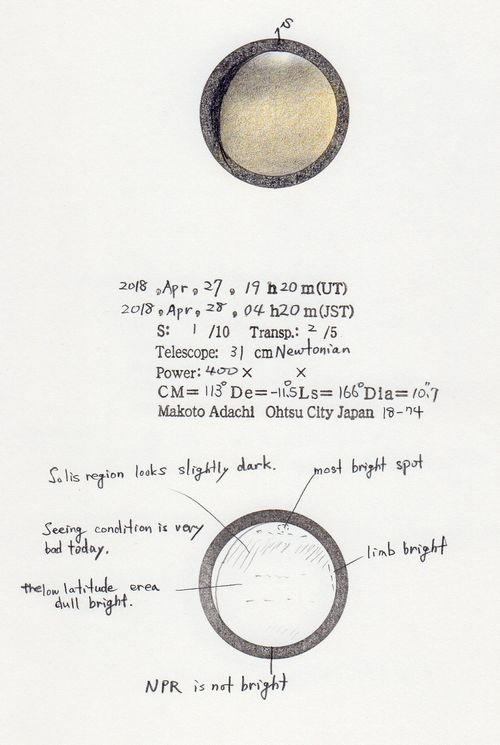 S
2018, Apr, 27, 19 h 20 m (UT)
2018, Apr, 28, 04 h 20 m (JST)
S: 1 /10 Transp.: 2 /5
Telescope: 31 cm Newtonian
Power: 400 × ×
CM= 113° De= -11.5° Ls= 166° Dia= 10.7"
Makoto Adachi Ohtsu City Japan 18-74
Solis region looks slightly dark.
most bright spot
Seeing condition is very
bad today.
limb bright
the low latitude erea
dull bright.
NPR is not bright